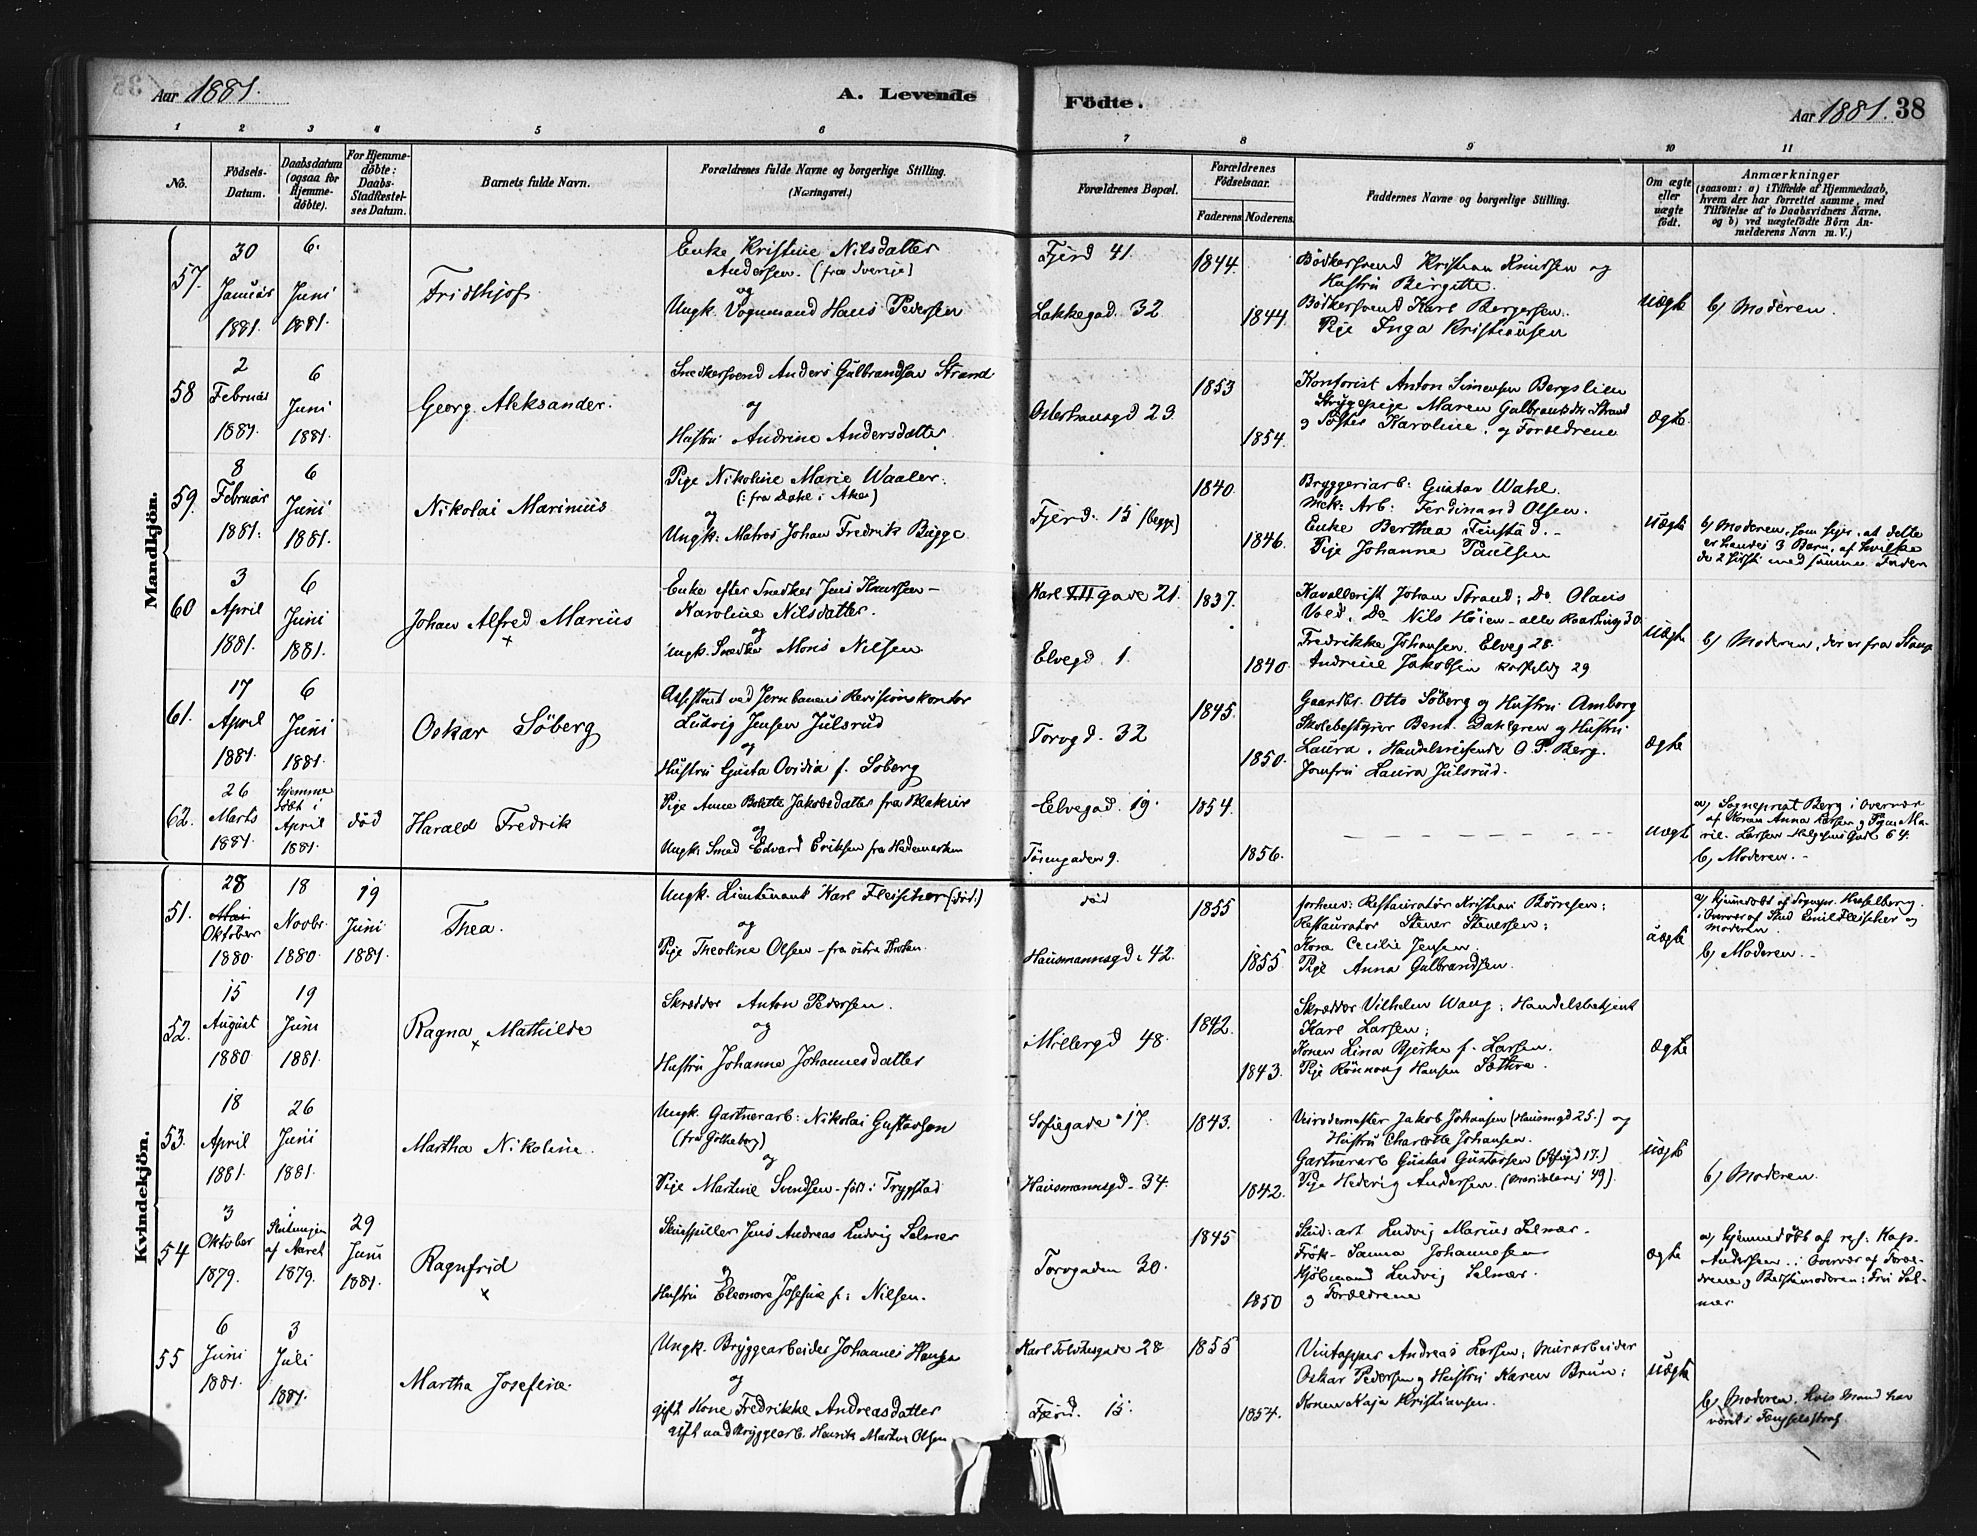 Aar 1881.
A. Levende
Födte.
Aar 1881. 38
1 2 3 4 5 6 7 8 9 10 11
No.
Födsels-
Datum.
Daabsdatum
(ogsaa for
Hjemme-
döbte).
For Hjemme-
döbte:
Daabs-
Stadfæstel-
ses Datum.
Barnets fulde Navn.
Forældrenes fulde Navne og borgerlige Stilling.
(Næringsvei.)
Forældrenes Bopæl.
Forældrenes
Födselsaar.
Faderens Moderens.
Faddernes Navne og borgerlige Stilling.
Om ægte
eller
uægte
födt.
Anmærkninger
(saasom: a) i Tilfælde af Hjemmedaab,
hvem der har forrettet samme, med
Tilföielse af to Daabsvidners Navne,
og b) ved uægtefödte Börn An-
melderens Navn m. V.)
Mandkjön.
57.
30
Januar
1881.
6.
Juni
1881.
Fridthjof
Enke Kristine Nilsdatter
Andersen. (fra Sverige)
og
Ungk. Vognmand Hans Pedersen
Fjerd. 41.
Lakkegad. 32.
1844.
1844.
Bödkersvend Kristian Knudsen og
Hustru Birgitte.
Bödkersvend Karl Bergersen.
Pige Inga Kristiansen
uægte
b) Moderen.
58
2
Februar
1881.
6
Juni
1881.
Georg Aleksander.
Snedkersvend Anders Gulbrandsen Strand
og
Hustru Andrine Andersdatter.
Osterhausgd 29.
1853
1854.
Kontorist Anton Simensen Bergslien
Strygepige Maren Gulbrandsdtr Strand
og Söster Karoline, og Forældrene
ægte.
59.
8
Februar
1881.
6
Juni
1881.
Nikolai Marinius
Pige Nikoline Marie Waaler.
(: fra Dahl i Aker)
og
Ungk: Matros Johan Fredrik Bügge.
Fjerd. 15 (begge)
1840.
1846.
Bryggeriarb: Gustav Wahl.
Mek: Arb: Ferdinand Olsen.
Enke Berthea Finstad.
Pige Johanne Paulsen
uægte
b) Moderen, som siger, at dette
er hendes 3 Barn, af hvilke
de 2 sidste med samme Fader
60
3
April
1881.
6
Juni
1881.
Johan Alfred Marius
×
Enke efter Snedker Jens Knudsen -
Karoline Nilsdatter.
og
Ungk. Snedker Mons Nilsen
Karl XII gade 21.
Elvegd. 1.
1837.
1840.
Kavallerist Johan Strand; Do Olaus
Vold, Do Nils Höien - alle
Fredrikke Johansen. Elveg 28.
Andrine Jakobsen 29
uægte
b) Moderen, der er fra Stange
61.
17
April
1881.
6
Juni
1881.
Oskar Söberg
Assistent ved Jernbanens Revisionskontor
Ludvig Jensen Julsrud
og
Hustru Gusta Ovidia f. Söberg
Torvgd. 32
1845.
1850.
Gaardbr. Otto Söberg og Hustru Amborg
Skolebestyrer Bent. Dahlgren og Hustru
Laura. Handelsreisende O. P. Berg.
Jomfru Laura Julsrud.
ægte
62.
26
Marts
1881.
Hjemme
döbt i
April
1881.
död
Harald Fredrik
Pige Anne Bolette Jakobsdatter fra Blakier
og
Ungk: Smed Edvard Eriksen fra Hedemarken
Elvegad. 19.
Töiengaden 9.
1854.
1856.
uægte
a) Sogneprest Berg i Overvær
af Konen Anna Larsen og Pigen Ma-
rie Larsen Helgesens Gade 64.
b) Moderen.
Kvindekjön.
51.
28
Mai
Oktober
1880.
18
Novbr.
1880.
19
Juni
1881.
Thea.
Ungk. Lieutenant Karl Fleischer (död.)
og
Pige Theoline Olsen - fra östre Thoten.
död
Hausmannsgd. 42.
1855
1855
forhenv: Restauratör Kristian Börresen;
Restauratör Stener Stenersen;
Kone Cecilie Jensen.
Pige Anna Gulbrandsen.
uægte
a) hjemmedöbt af Sognepr. Hesselberg
i Overvær af Stud Emil Fleischer og
Moderen.
b) Moderen.
52.
15
August
1880
19
Juni
1881.
Ragna Mathilde
×
Skrædder Anton Pedersen.
og
Hustru Johanne Johannesdatter
Möllergd 48.
1842.
1843.
Skrædder Vilhelm Wang; Handelsbetjent
Karl Larsen;
Konen Lina Bjerke f. Larsen.
Pige Rönnoug Hansen Sæthre.
ægte
53.
18
April
1881.
26
Juni
1881.
Martha Nikoline.
Ungk. Gartnerarb: Nikolai Gustavson
(fra Götheborg)
og
Pige Martine Svendsen - född i Trygstad
Sofiegade 17.
Hausmannsgd. 34.
1843.
1842.
Veirodemester Jakob Johansen (Hausmgd 25.) og
Hustru Charlotte Johansen.
Gartnerarb Gustav Gustavsen (Sofiegd 17.)
Pige Hedevig Andersen. (Maridalsvei 49).
uægte
b) Moderen.
54
3
Oktober
1879.
Slutningen
af Aaret
1879.
29
Juni
1881.
Ragnfrid
×
Skuespiller Jens Andreas Ludvig Selmer
og
Hustru Eleonora Josefine f: Nilsen.
Torvgaden 30.
1845
1850
Stud: art Ludvig Marius Selmer.
Frök- Sanna Johannesen
Kjöbmand Ludvig Selmer.
og Forældrene
ægte
a) hjemmedöbt af res: Kap.
Andersen. i Overvær af Foræl-
drene og Bedstemoderen: Fru Sel-
mer
55
6
Juni
1881.
3
Juli
1881.
Martha Josefine.
Ungk. Bryggearbeider Johannes Hansen
og
gift Kone Fredrikke Andreasdatter
gift med Bryggearb. Henrik Martin Olsen
Karl Foldtesgade 28
Fjerd. 15.
1855
1854.
Vintapper Andreas Larsen; Murarbeider
Oskar Pedersen og Hustru Karen Brun;
Konen Kaja Kristiansen.
uægte
b) Moderen, hvis Mand har
været i Fængselsstraf